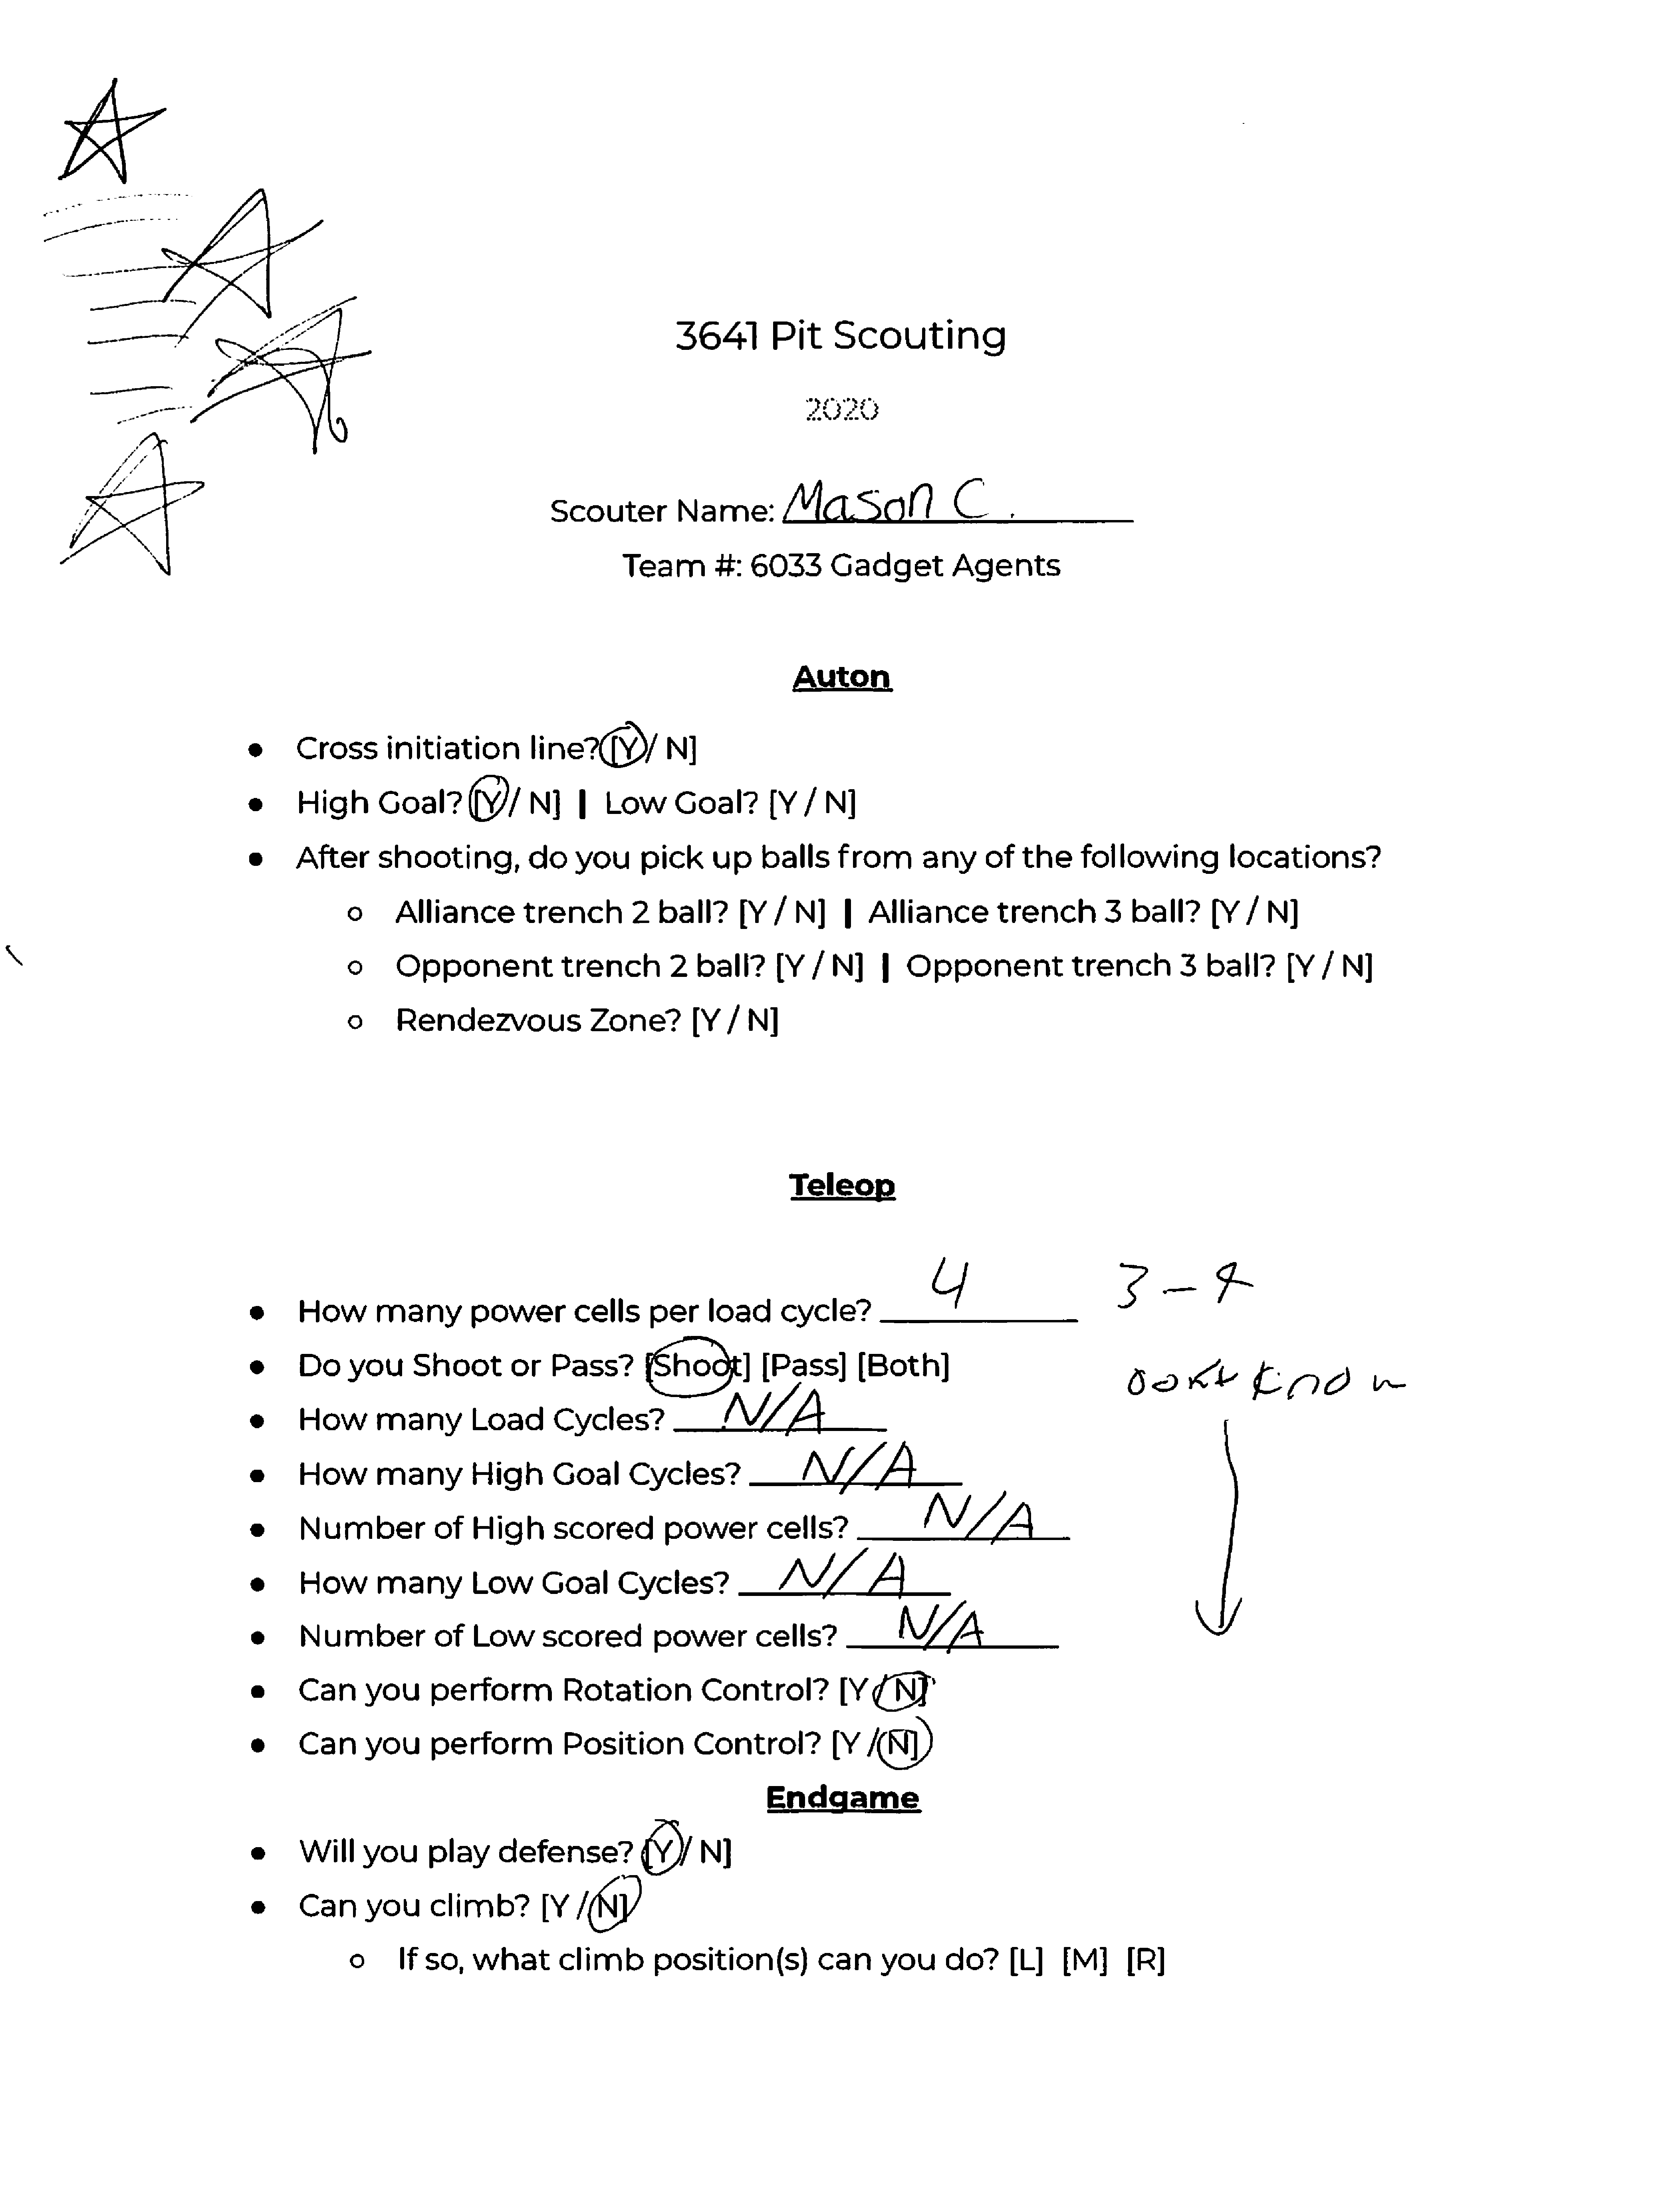 3641 Pit Scouting
2020
Scouter Name: Mason C.
Team #: 6033 Gadget Agents
Auton
● Cross initiation line? [Y / N]
● High Goal? [Y / N] | Low Goal? [Y / N]
● After shooting, do you pick up balls from any of the following locations?
○ Alliance trench 2 ball? [Y / N] | Alliance trench 3 ball? [Y / N]
○ Opponent trench 2 ball? [Y / N] | Opponent trench 3 ball? [Y / N]
○ Rendezvous Zone? [Y / N]
Teleop
● How many power cells per load cycle? 4 3-4
● Do you Shoot or Pass? [Shoot] [Pass] [Both] know
● How many Load Cycles? N/A
● How many High Goal Cycles? N/A
● Number of High scored power cells? N/A
● How many Low Goal Cycles? N/A
● Number of Low scored power cells? N/A
● Can you perform Rotation Control? [Y / N]
● Can you perform Position Control? [Y / N]
Endgame
● Will you play defense? [Y / N]
● Can you climb? [Y / N]
○ If so, what climb position(s) can you do? [L] [M] [R]